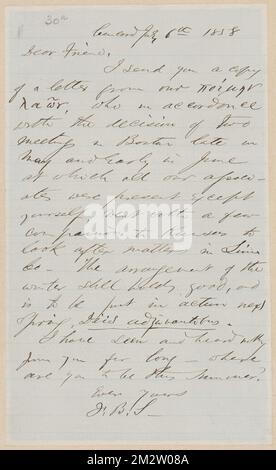 30a
Concord July 6th 1858
Dear Friend,
I send you a copy
of a letter from our ποίμην
λαῶν, who in accordance
with the decision of two
meetings in Boston late in
May and early in June
at which all our associ-
ates were present except
yourself, went with a few
companions to Kansas to
look after matters in Linn
Co - The arrangement of the
writer still holds good, and
is to be put in action next
Spring, Deis adjuvantibus.
I have seen and heard nothing
from you for long - where
are you to be this summer?
Ever Yours
F. B. S -
alamy
alamy
Image ID: 2M2W08A
www.alamy.com